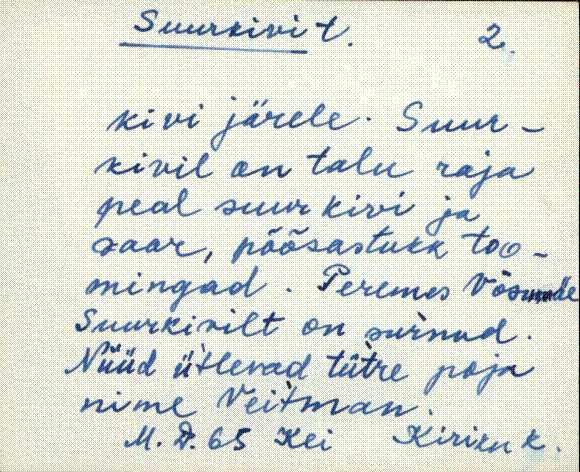 Suurkivi t. 2.
kivi järele. Suur-
kivil on talu raja
peal suur kivi ja
saar, põõsastukk too-
mingad. Peremes
Suurkivilt on surnud.
Nüüd ütlevad tütre poja
nime Veitman.
M. D. 65 Kei Kirikuk.